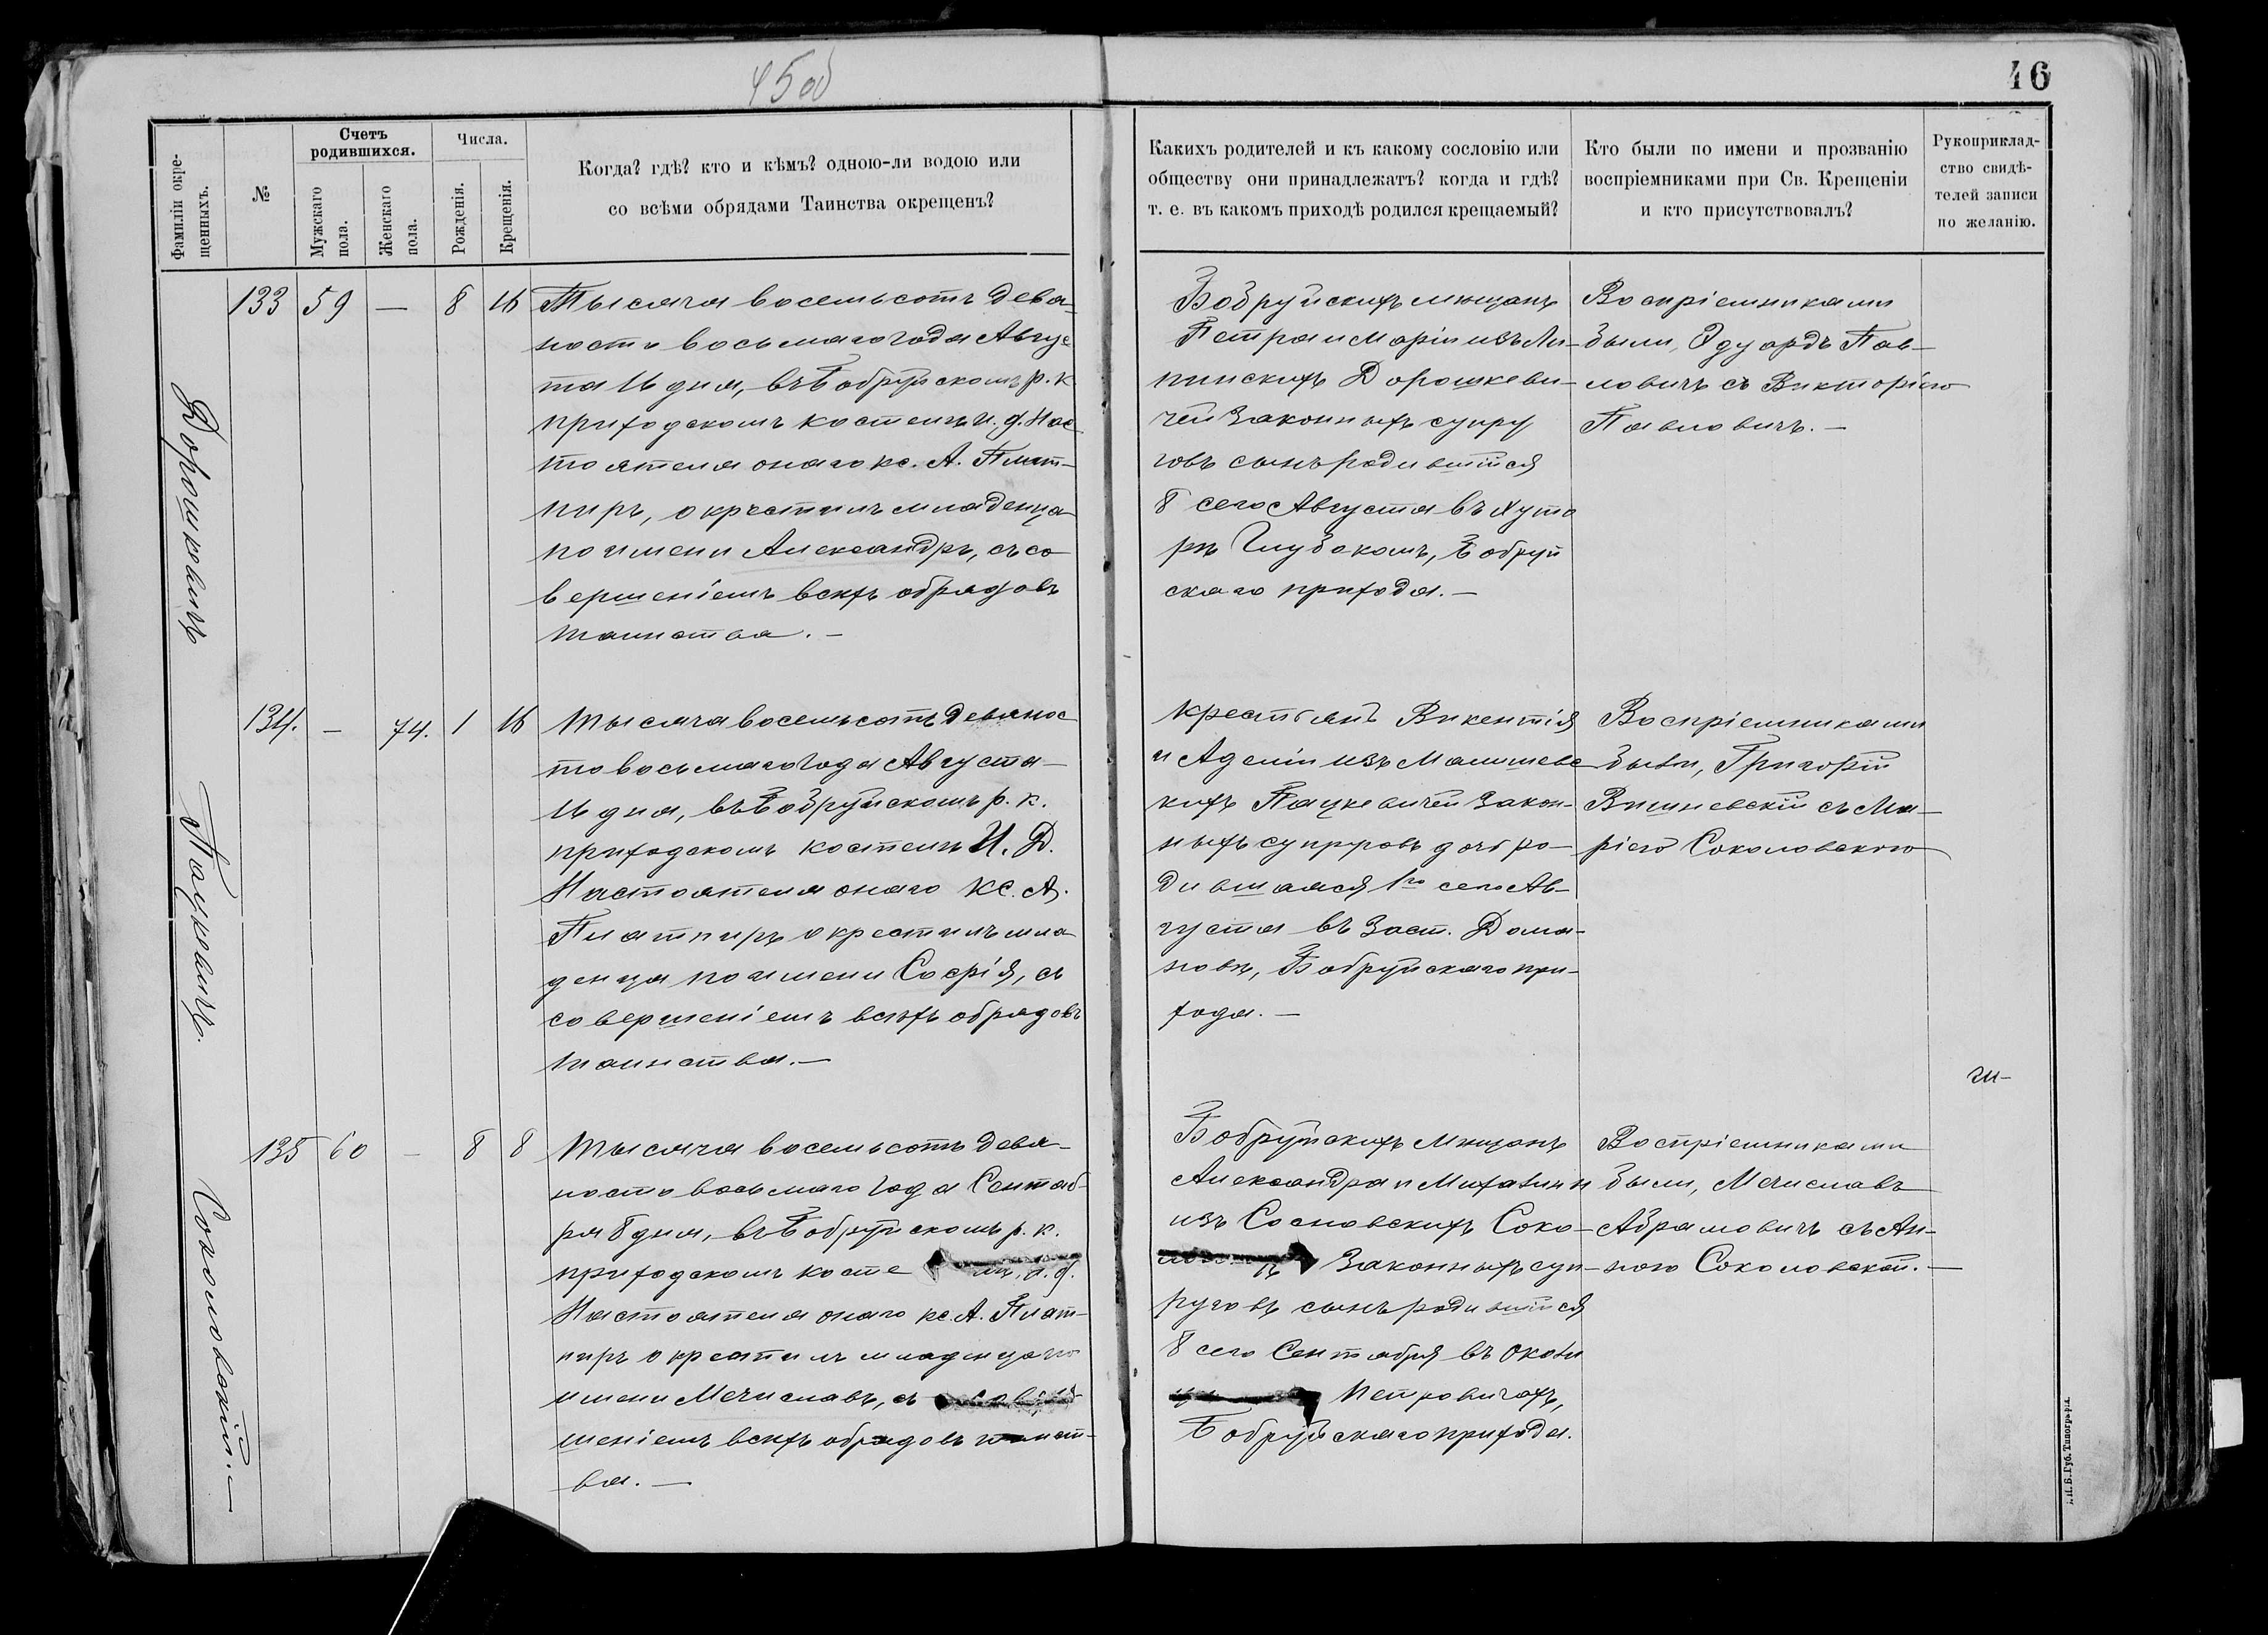 45 об
46
Фамиліи окре-
щенныхъ.
№
Счетъ
родившихся.
Мужскаго
пола.
Женскаго
пола.
Числа.
Рожденія.
Крещенія.
Когда? гдѣ? кто и кѣмъ? одною-ли водою или
со всѣми обрядами Таинства окрещенъ?
Какихъ родителей и къ какому сословію или
обществу они принадлежатъ? когда и гдѣ?
т. е. въ какомъ приходѣ родился крещаемый?
Кто были по имени и прозванію
воспріемниками при Св. Крещеніи
и кто присутствовалъ?
Рукоприклад-
ство свидѣ-
телей записи
по желанію.
Дорошкевичъ
133 59 — 8 16
Тысяча восемьсотъ девя-
носто восьмаго года Авгус
та 16 дня, въ Бобруйскомъ р. к
приходскомъ костелѣ и. д. Нас
тоятеля онаго кс. А. Плят-
пиръ, окрестилъ младенца
по имени Александръ, съ со
вершеніемъ всѣхъ обрядовъ
таинства. —
Бобруйскихъ мѣщанъ
Петра и Маріи изъ Ли-
пинскихъ Дорошкеви-
чей законныхъ супру
говъ сынъ родившійся
8 сего Августа въ хуто
рѣ Глубокомъ, Бобруй
скаго прихода. —
Воспріемниками
были, Эдуардъ Пав-
ловичъ съ Викторіею
Павловичъ. —
Пацкевичъ.
134. — 74. 1 16
Тысяча восемьсотъ девянос
то восьмаго года Августа
16 дня, въ Бобруйскомъ р. к.
приходскомъ костелѣ И. Д.
Настоятеля онаго кс. А.
Плятпиръ окрестилъ мла
денца по имени Софія, съ
совершеніемъ всѣхъ обрядовъ
таинства. —
Крестьянъ Викентія
и Аделіи изъ Малишевс
кихъ Пацкевичей закон-
ныхъ супруговъ дочь ро-
дившаяся 1го сего Ав-
густа въ заст. Дома-
новѣ, Бобруйскаго при-
хода. —
Воспріемниками
были, Григорій
Вишневскій съ Ма-
ріею Соколовскою
Соколовскій. —
135 60 — 8 8
Тысяча восемьсотъ девя-
носто восьмаго года Сентяб-
ря 8 дня, въ Бобруйскомъ р. к.
приходскомъ косте лѣ, и. д.
Настоятеля онаго кс. А. Плят-
пиръ окрестилъ младенца по
имени Мечиславъ, съ
шеніемъ всѣхъ обрядовъ таинст-
ва. —
Бобруйскихъ мѣщанъ
Александра и Михалины
изъ Сосновскихъ Соко-
законныхъ суп-
руговъ сынъ родившійся
8 сего Сентября въ Околи
Петровичахъ,
Бобруйскаго прихода.
Воспріемниками
были, Мечиславъ
Абрамовичъ съ Ан-
ною Соколовской. —